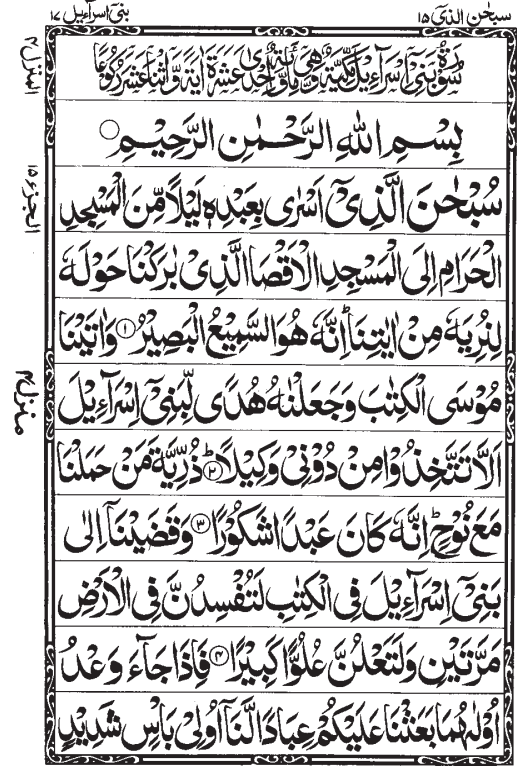 سبحٰن الذی ۱۵
بنی اسرآءیل ۱۷
سُوْرَةُ بَنِیْٓ اِسْرَآءِیْلَ مَكِّیَّةٌ وَّهِیَ مِائَةٌ وَّاِحْدٰی عَشْرَةَ اٰیَةً وَّاثْنَا عَشَرَ رُكُوْعًا
بِسْمِ اللهِ الرَّحْمٰنِ الرَّحِیْمِ ○
سُبْحٰنَ الَّذِیْٓ اَسْرٰی بِعَبْدِهٖ لَیْلًا مِّنَ الْمَسْجِدِ
الْحَرَامِ اِلَی الْمَسْجِدِ الْاَقْصَا الَّذِیْ بٰرَكْنَا حَوْلَهٗ
لِنُرِیَهٗ مِنْ اٰیٰتِنَا ؕ اِنَّهٗ هُوَ السَّمِیْعُ الْبَصِیْرُ ۱ وَاٰتَیْنَا
مُوْسَی الْكِتٰبَ وَجَعَلْنٰهُ هُدًی لِّبَنِیْٓ اِسْرَآءِیْلَ
اَلَّا تَتَّخِذُوْا مِنْ دُوْنِیْ وَكِیْلًا ۲ؕ ذُرِّیَّةَ مَنْ حَمَلْنَا
مَعَ نُوْحٍ ؕ اِنَّهٗ كَانَ عَبْدًا شَكُوْرًا ۳ وَقَضَیْنَآ اِلٰی
بَنِیْٓ اِسْرَآءِیْلَ فِی الْكِتٰبِ لَتُفْسِدُنَّ فِی الْاَرْضِ
مَرَّتَیْنِ وَلَتَعْلُنَّ عُلُوًّا كَبِیْرًا ۴ فَاِذَا جَآءَ وَعْدُ
اُوْلٰىهُمَا بَعَثْنَا عَلَیْكُمْ عِبَادًا لَّنَآ اُولِیْ بَاْسٍ شَدِیْدٍ
المنزل ۴
الجزء ۱۵
منزل ۴